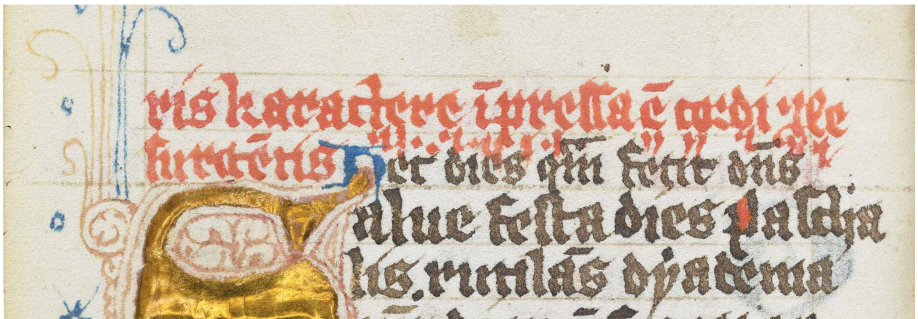 ris karactere īpressa ē cordi
surgētis Hec dies qm̄ fecit dn̄s
alue festa dies pascha
lis. rutilās dyadema